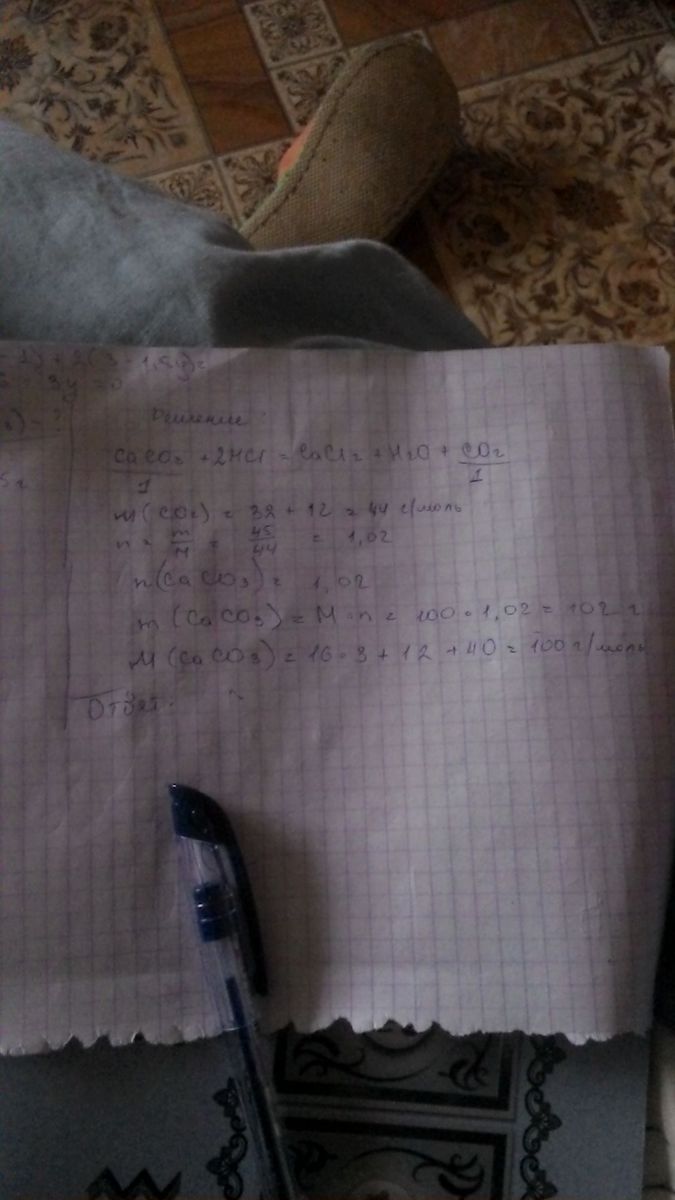 - 1y + 2(3 - 1,5y) =
3y = 0
) - ?
Решение:
5 г
CaCO3 + 2HCl = CaCl2 + H2O + CO2
1 1
m(CO2) = 32 + 12 = 44 г/моль
n = m/M = 45/44 = 1,02
n(CaCO3) = 1,02
m(CaCO3) = M · n = 100 · 1,02 = 102 г
M(CaCO3) = 16 · 3 + 12 + 40 = 100 г/моль
Ответ.